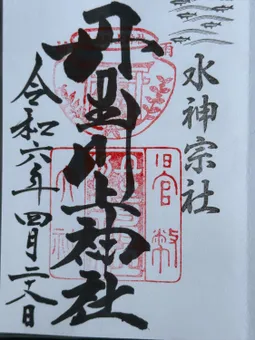 水神宗社
丹生川上神社
令和六年四月二十八日
旧官幣